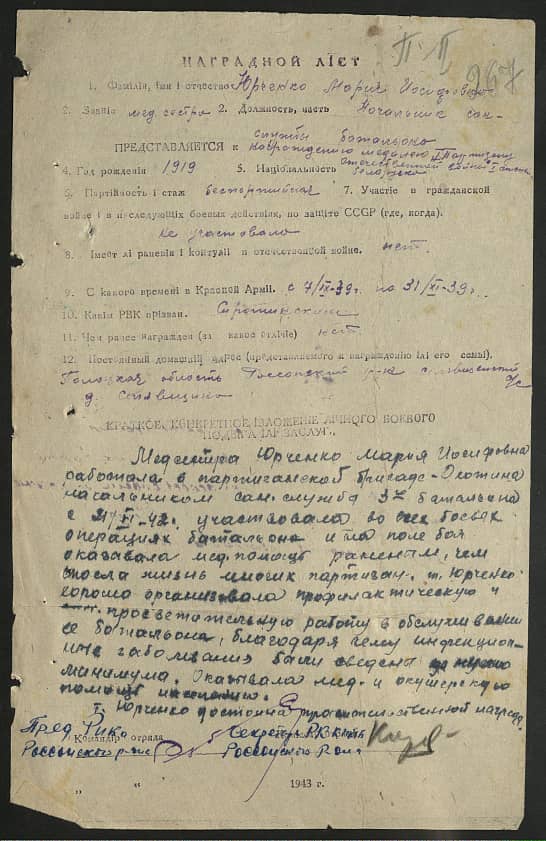 П П
267
НАГРАДНОЙ ЛІСТ
1. Фамілія, імя і отчество Юрченко Мария Иосифовна
2. Званіе мед. сестра 2. Должность, часть Начальник сан-
службы батальона
ПРЕДСТАВЛЯЕТСЯ к награждению медалью "Партизану
отечественной войны" степени
4. Год рождения 1919 5. Национальность белоруска
6. Партійность і стаж беспартийная 7. Участіе в гражданской
войне і в последующіх боевых действіях, по защіте СССР (где, когда).
не участвовала
8. Імеет лі раненія і контузіі в отечественной войне. нет.
9. С какого времені в Красной Арміі. с 7/IX-39г. по 31/XI-39г.
10. Каким РВК прізван. Сиротинским
11. Чем ранее награжден (за какое отлічіе) нет
12. Постоянный домашній адрес (представляемого к награжденію ілі его семьі).
область Россонский р-н с/с
д.
КРАТКОЕ, КОНКРЕТНОЕ ІЗЛОЖЕНІЕ ЛІЧНОГО БОЕВОГО
ПОДВІГА ІЛІ ЗАСЛУГ.
Медсестра Юрченко Мария Иосифовна
работала в партизанской бригаде Охотина
начальником сан. службы 3го батальона
с 21/VI-42г. участвовала во всех боевых
операциях батальона и на поле боя
оказывала мед. помощь раненым, чем
спасла жизнь многих партизан. т. Юрченко
хорошо организовала профилактическую и
просветительную работу в обслуживании
ее батальона, благодаря чему инфекцион-
ные заболевания были сведены до
минимума. Оказывала мед. и акушерскую
помощь населению.
т. Юрченко достойна правительственной награды.
Пред. Рика Командір отряда Секретарь РК КП(б)Б
Россонского р-на Россонского р-на
" " 1943 г.